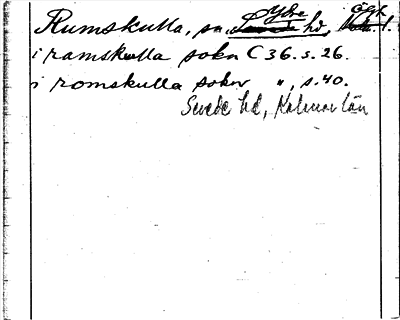 Rumskulla, sn Ydre hd, Ögl.
i ramskulla sokn C 36. s. 26.
i romskulla sokn ", s. 40.
Sevede hd, Kalmar län